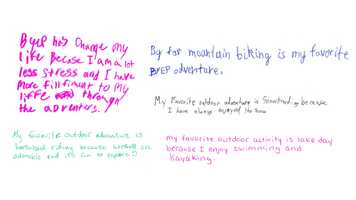 BYEP has Change My
life Becase I am a lot
less stress and I have
More fill fimint to My
liffe through
the adventers.
By far mountain biking is my favorite
BYEP adventure.
My Favorite outdoor adventure is Snowboarding because
I have always enjoyed the snow
My favorite outdoor adventure is
horseback riding because horses are
adorable and it's fun to
my favorite outdoor activity is lake day
because I enjoy swimming and
Kayaking.